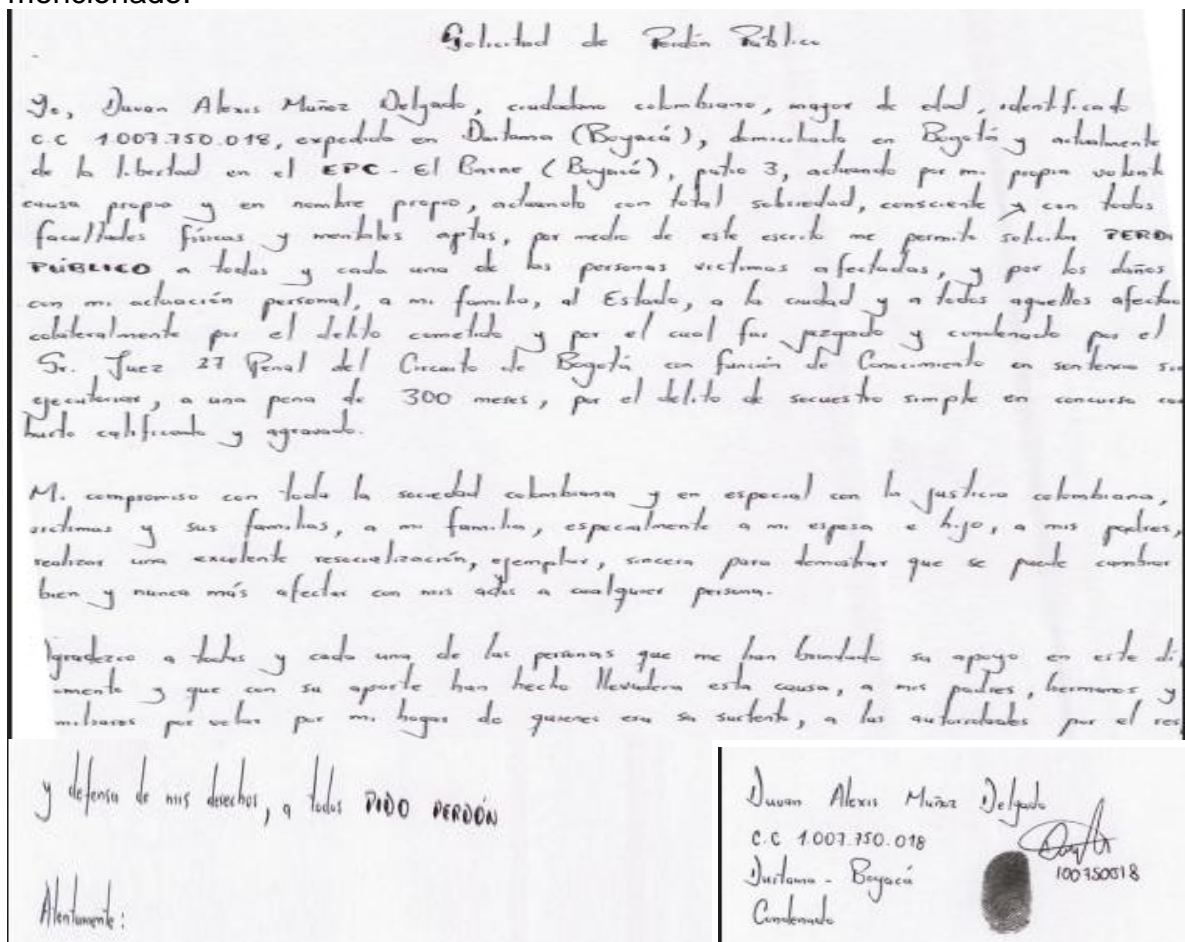 mencionado.
Solicitud de Perdón Público
Yo, Duvan Alexis Muñoz Delgado, ciudadano colombiano, mayor de edad, identificado
c.c 1.007.750.018, expedida en Duitama (Boyacá), domiciliado en Bogotá y actualmente
de la libertad en el EPC - El Barne (Boyacá), patio 3, actuando por mi propia volunt
causa propia y en nombre propio, actuando con total sobriedad, consciente y con todas
facultades físicas y mentales aptas, por medio de este escrito me permito solicitar PERD
PÚBLICO a todas y cada una de las personas victimas afectadas, y por los daños
con mi actuación personal, a mi familia, al Estado, a la ciudad y a todos aquellos afectad
colateralmente por el delito cometido y por el cual fui juzgado y condenado por el
Sr. Juez 27 Penal del Circuito de Bogotá con función de Conocimiento en sentencia
ejecutoriar, a una pena de 300 meses, por el delito de secuestro simple en concurso con
hurto calificado y agravado.
Mi compromiso con toda la sociedad colombiana y en especial con la justicia colombiana,
victimas y sus familias, a mi familia, especialmente a mi esposa e hijo, a mis padres,
realizar una excelente resocialización, ejemplar, sincera para demostrar que se puede cambiar
bien y nunca más afectar con mis actos a cualquier persona.
Agradezco a todas y cada una de las personas que me han brindado su apoyo en este di
omento y que con su aporte han hecho llevadera esta causa, a mis padres, hermanos y
miliares por velar por mi hogar de quienes era su sustento, a las autoridades por el res
y defensa de mis derechos, a todos PIDO PERDÓN
Atentamente:
Duvan Alexis Muñoz Delgado
c.c 1.007.750.018
Duitama - Boyacá
Condenado
100750018